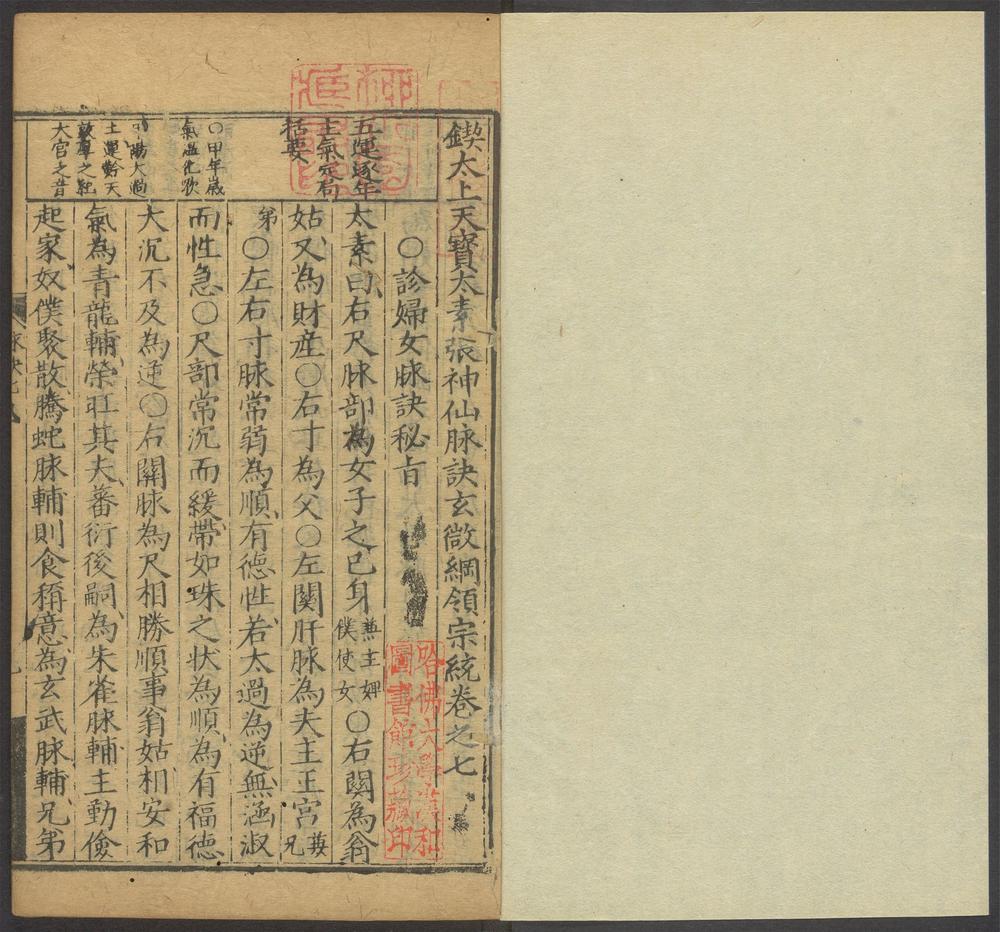 鍥太上天寶太素張神仙脉訣玄微綱領宗統卷之七
五運逐年
主氣定句
括要
〇甲年歲
土運
天
大官之音
〇診婦女脉訣秘旨
太素曰右尺脉部為女子之己身兼主婢僕使女〇右関為翁
姑又為財産〇右寸為父〇左関肝脉為夫主王宮兼兄
弟〇左右寸脉常弱為順有德性若太過為逆無涵淑
而性急〇尺部常沉而緩帶如珠之状為順為有福德
大沉不及為逆〇右關脉為尺相勝順事翁姑相安和
氣為青龍輔榮旺其夫蕃衍後嗣為朱雀脉輔主勤儉
起家奴僕聚散騰蛇脉輔則食稱意為玄武脉輔兄弟
哈佛大學漢和
圖書館珍藏印